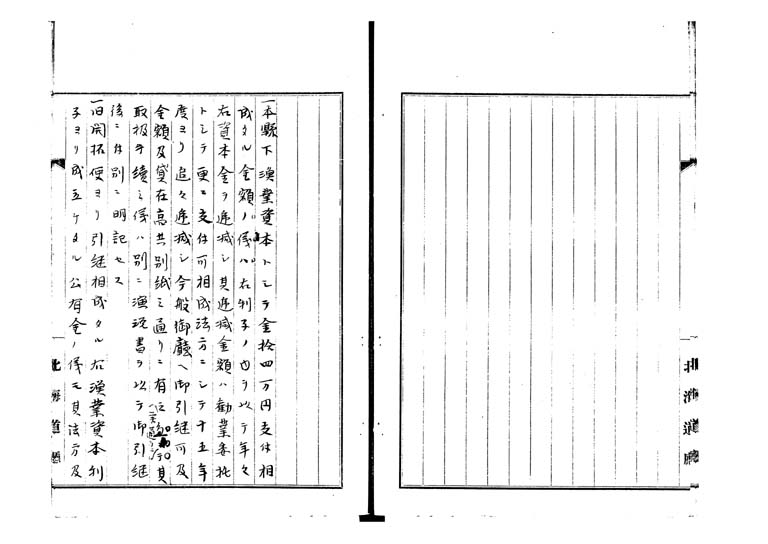 一本縣下漁業資本トシテ金拾四万円支付相
成タル金額ノ儀ハ右利子ノ内ヲ以テ年々
右資本金ヲ逓減シ其逓減金額ハ勧業委托
トシテ更ニ支付可相成法方ニシテ十五年
度ヨリ追々逓減シ今般御廳ヘ御引継可及
金額及貸在高共別紙之通リニ有 其
取扱手續之儀ハ別ニ演説書ヲ以テ御引継
後ニ付別ニ明記セス
一旧開拓使ヨリ引継相成タル右漁業資本利
子ヨリ成立ケタル公有金ノ儀モ其法方及
北海道廳
北海道廳